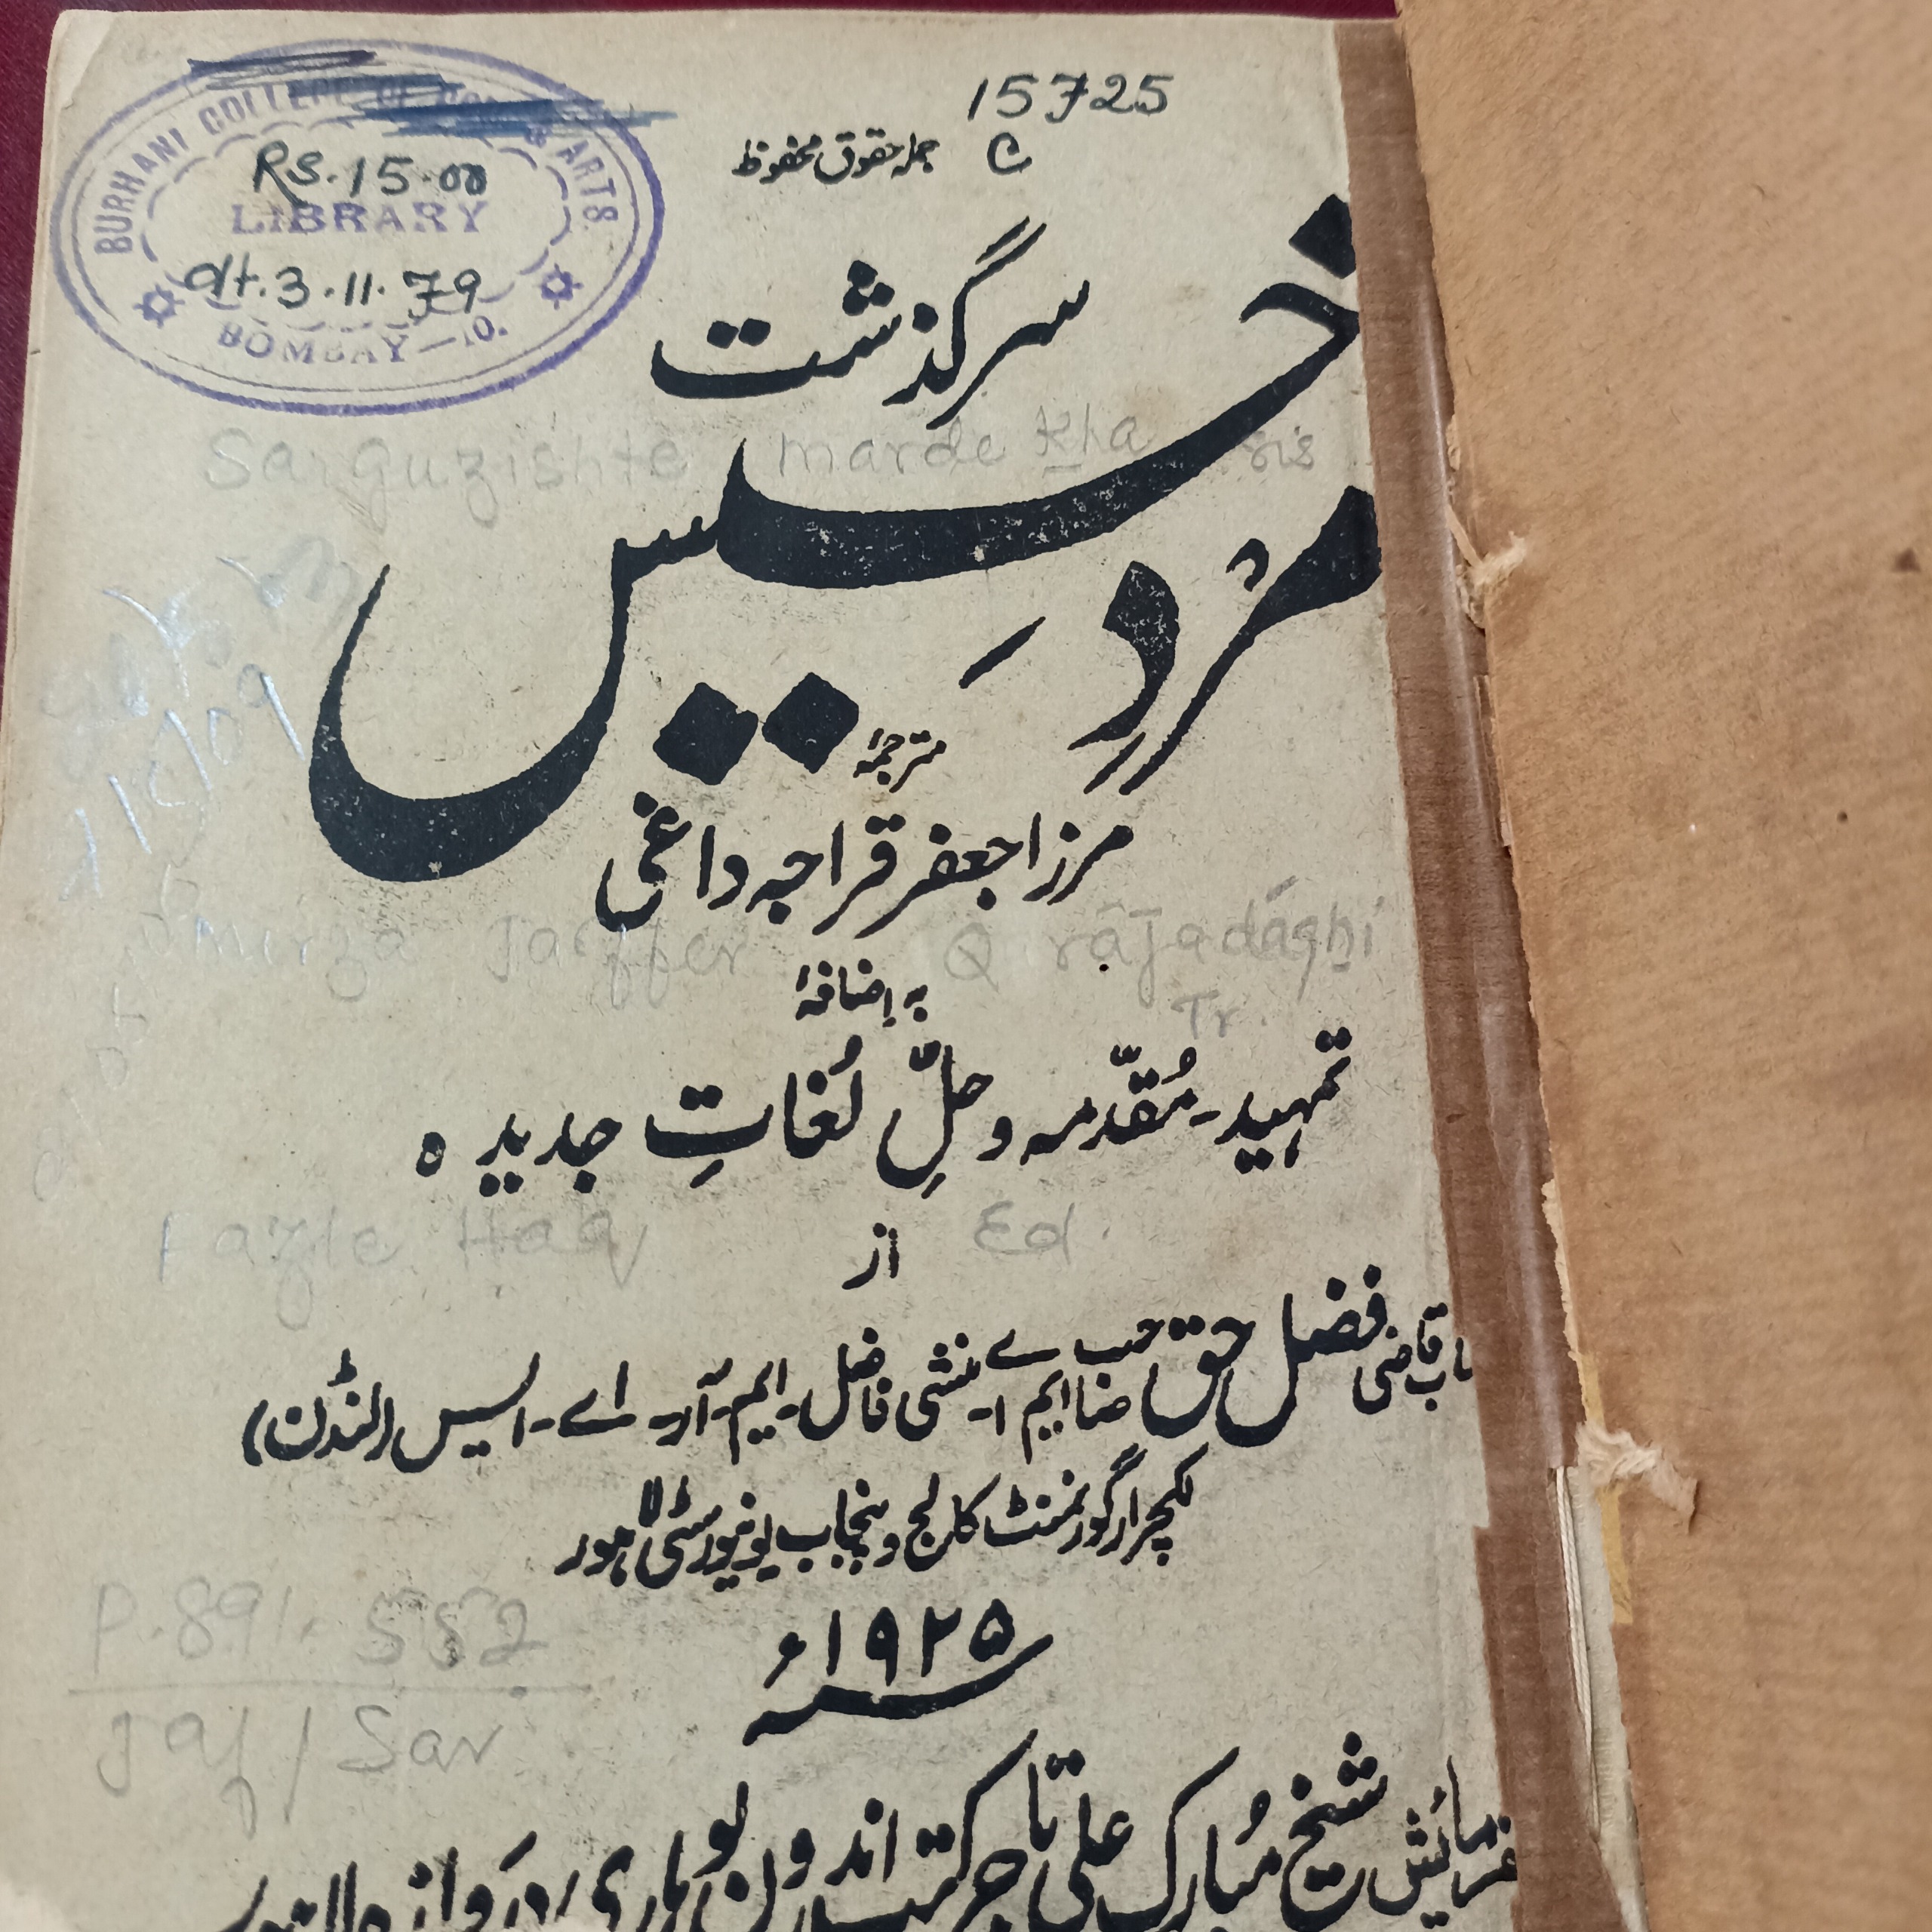 BURHANI COLLEGE OF & ARTS
Rs. 15.00
LIBRARY
dt. 3.11.79
BOMBAY-10.
15725
C
جملہ حقوق محفوظ
سرگذشت
Sarguzishte marde Kha sis
مردِ خسیس
مترجمۂ
مرزا جعفر قراجہ داغی
Mirza Jaffer Qurājadāghi
Tr.
بہ اِضافۂ
تمہید۔ مُقدّمہ و حلِّ لُغاتِ جدیدہ
Fazle Haq Ed.
از
قاضی فضل حق صاحب ایم اے۔ منشی فاضل۔ ایم۔ آر۔ اے۔ ایس (لنڈن)
لکچرار گورنمنٹ کالج و پنجاب یونیورسٹی لاہور
P.891.552
Jaf/Sar
سنہ ۱۹۲۵ء
فرمائش شیخ مُبارک علی تاجر کتب اندرون لوہاری دروازہ لاہور